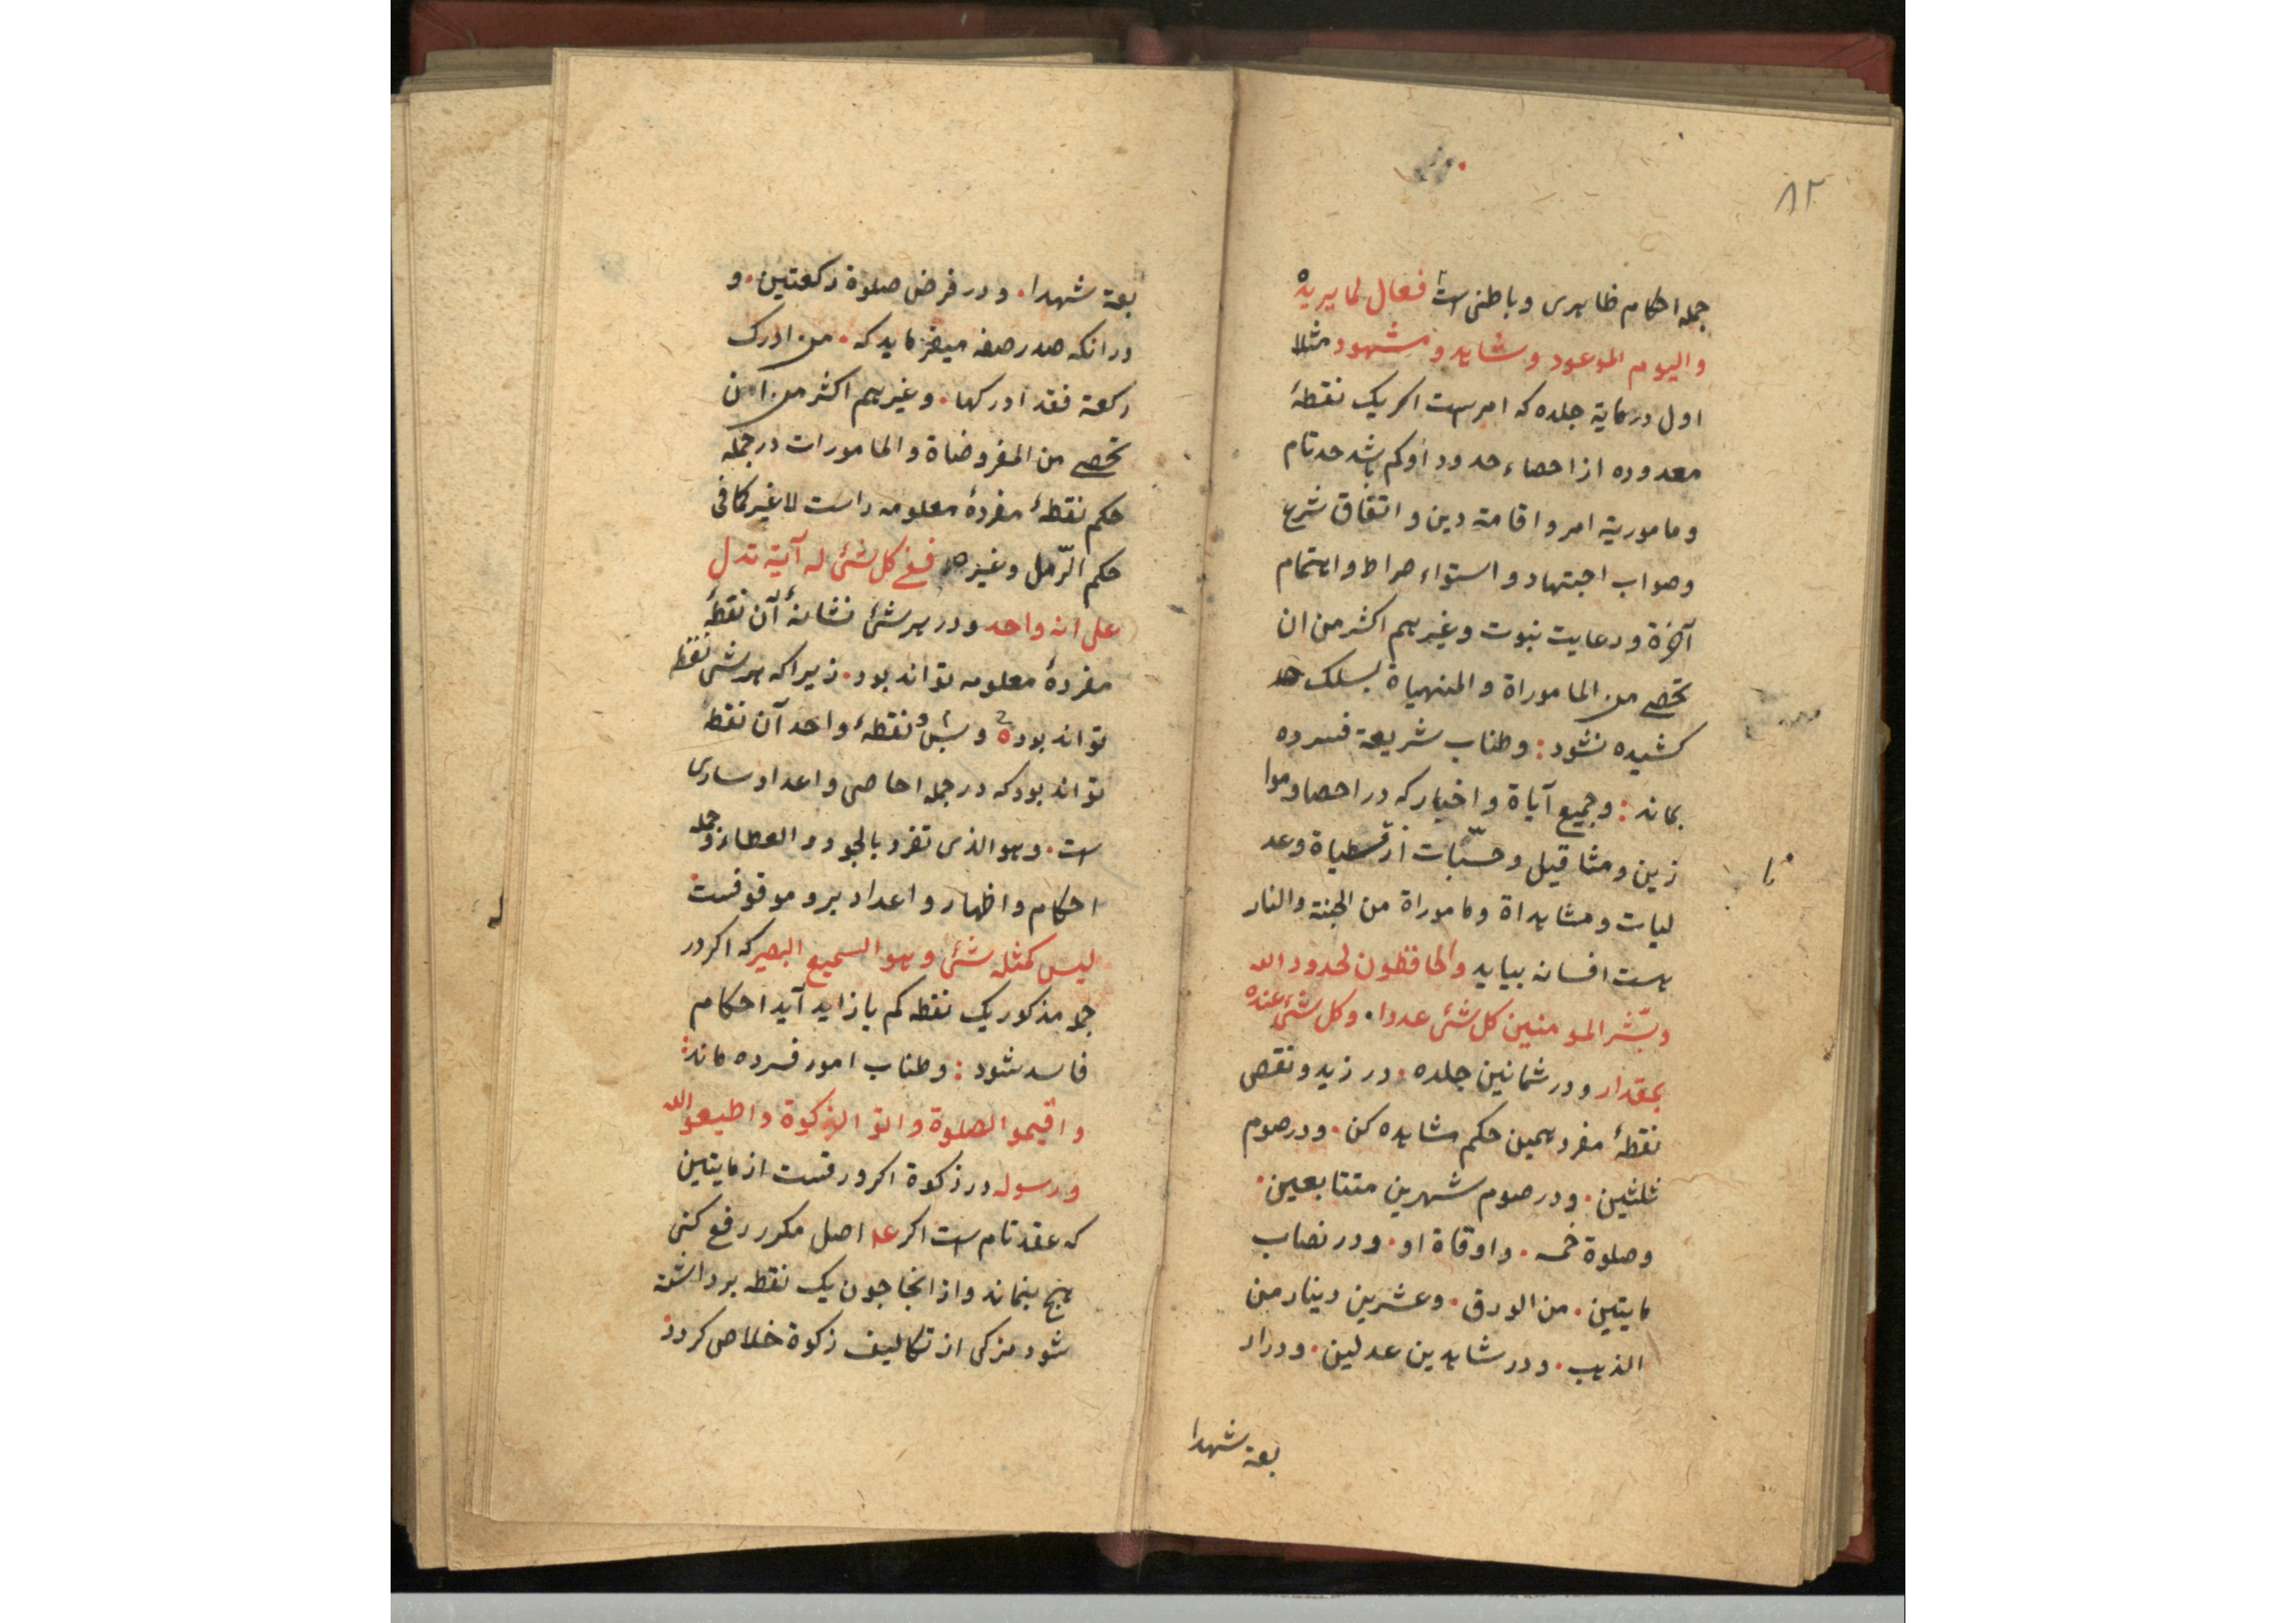 ۸۲
جمله احکام ظاهری و باطنی است فعال لما یریده
والیوم الموعود و شاهد و مشهود مثلا
اول در مایة جلده که امرست اکر یک نقطهٔ
معدوده از احصاء حدود او کم باشد حد تام
و ماموریة امر و اقامة دین و اتفاق شرع
و صواب اجتهاد و استواء صراط و اهتمام
آخرة و رعایت نبوت و غیرهم اکثر من ان
تحصی من الماموراة و المنهیاة بسلک حد
کشیده نشود : و طناب شریعة فسرده
بماند : و جمیع آیاة و اخبار که در احصا و موا
زین و مثاقیل و حسّبات از قسطیاة و عد
لیات و مشاهداة و ماموراة من الجنة والنار
هست افسانه بیاید والحافظون لحدود الله
و بشّر المومنین کل شئ عددا . و کل شئ عنده
بمقدار و در ثمانین جلده . در زید و نقص
نقطهٔ مفرد همین حکم مشاهده کن . و در صوم
ثلثین . و در صوم شهرین متتابعین .
و صلوة خمسه . و اوقاة او . و در نصاب
مایتین . من الورق . و عشرین دینار من
الذهب . و در شاهدین عدلین . و در ار
بعة شهدا
بعة شهدا . و در فرض صلوة رکعتین . و
در انکه صدر صفه میفرماید که . من ادرک
رکعة فقد ادرکها . و غیرهم اکثر من ان
تحصی من المفروضاة و المامورات در جمله
حکم نقطهٔ مفردهٔ معلومه راست لا غیر کما فی
حکم الرّمل و غیره ففی کل شئ له آیة تدل
علی انه واحد و در هر شئ نشانهٔ آن نقطهٔ
مفردهٔ معلومه تواند بود . زیرا که هر شی نقطه
تواند بوده و نقطهٔ واحد آن نقطه
تواند بود که در جمله احاصی و اعداد ساری
است . و هو الذی تفرد بالجود و العطاء و جمله
احکام و اظهار و اعداد برو موقوفست
لیس کمثله شئ و هو السمیع البصیر که اکر در
جمله مذکور یک نقطه کم یا زاید آید احکام
فاسد شود : و طناب امور فسرده ماند :
و اقیمو الصلوة و اتو الزکوة و اطیعو الله
و رسوله در زکوة اکر ورقست از مایتین
که عقد تام است اکر عد اصل مکرر رفع کنی
هیچ بنماند و از انجا چون یک نقطه برداشته
شود مزکی از تکالیف زکوة خلاص کردد